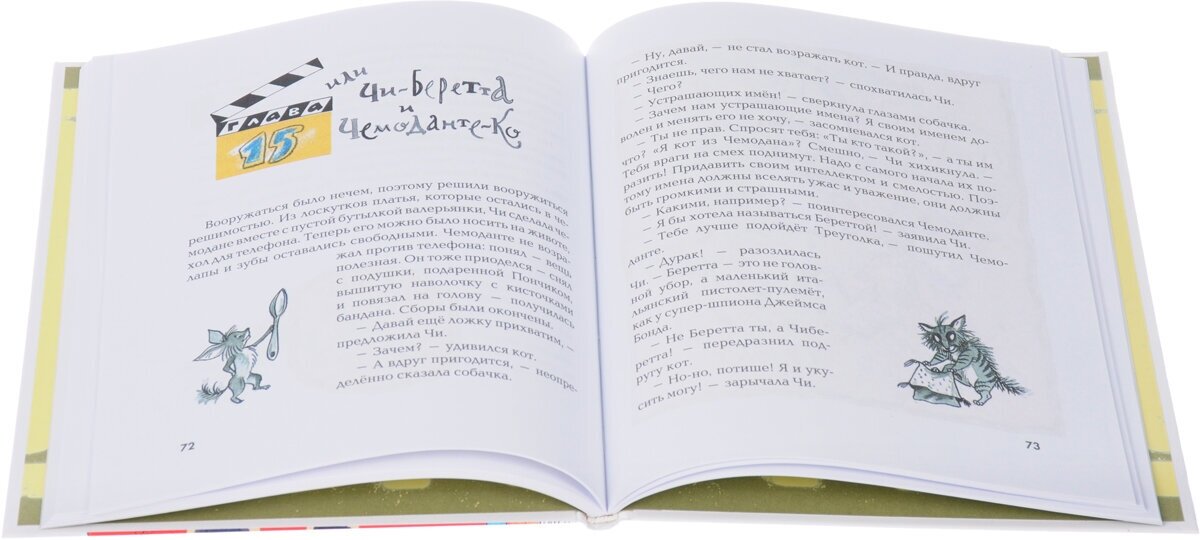 ГЛАВА
15
или
Чи-Беретта
и
Чемоданте-Ко
Вооружаться было нечем, поэтому решили вооружиться
решимостью. Из лоскутков платья, которые остались в че-
модане вместе с пустой бутылкой валерьянки, Чи сделала че-
хол для телефона. Теперь его можно было носить на животе,
лапы и зубы оставались свободными. Чемоданте не возра-
жал против телефона: понял — вещь
полезная. Он тоже приоделся — снял
с подушки, подаренной Пончиком,
вышитую наволочку с кисточками
и повязал на голову — получилась
бандана. Сборы были окончены.
— Давай ещё ложку прихватим, —
предложила Чи.
— Зачем? — удивился кот.
— А вдруг пригодится, — неопре-
делённо сказала собачка.
72
— Ну, давай, — не стал возражать кот. — И правда, вдруг
пригодится.
— Знаешь, чего нам не хватает? — спохватилась Чи.
— Чего?
— Устрашающих имён! — сверкнула глазами собачка.
— Зачем нам устрашающие имена? Я своим именем до-
волен и менять его не хочу, — засомневался кот.
— Ты не прав. Спросят тебя: «Ты кто такой?», — а ты им
что? «Я кот из Чемодана»? Смешно, — Чи хихикнула. —
Тебя враги на смех поднимут. Надо с самого начала их по-
разить! Придавить своим интеллектом и смелостью. Поэ-
тому имена должны вселять ужас и уважение, они должны
быть громкими и страшными.
— Какими, например? — поинтересовался Чемоданте.
— Я бы хотела называться Береттой! — заявила Чи.
— Тебе лучше подойдёт Треуголка, — пошутил Чемо-
данте.
— Дурак! — разозлилась
Чи. — Беретта — это не голов-
ной убор, а маленький ита-
льянский пистолет-пулемёт,
как у супер-шпиона Джеймса
Бонда.
— Не Беретта ты, а Чибе-
ретта! — передразнил под-
ругу кот.
— Но-но, потише! Я и уку-
сить могу! — зарычала Чи.
73